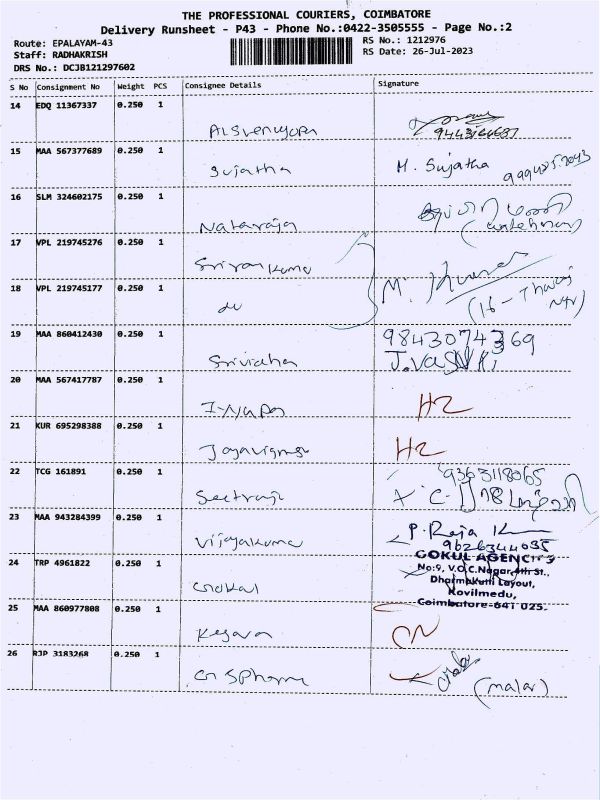 THE PROFESSIONAL COURIERS, COIMBATORE
Delivery Runsheet - P43 - Phone No.:0422-3505555 - Page No.:2
Route: EPALAYAM-43 RS No.: 1212976
Staff: RADHAKRISH RS Date: 26-Jul-2023
DRS No.: DCJB121297602
S No Consignment No Weight PCS Consignee Details Signature
14 EDQ 11367337 0.250 1
15 MAA 567377689 0.250 1
Sujatha M. Sujatha
16 SLM 324602175 0.250 1
Nataraja (watchman)
17 VPL 219745276 0.250 1
18 VPL 219745177 0.250 1
do M. Kumar
19 MAA 860412430 0.250 1
98430 74369
Srividhya J.VASUKI
20 MAA 567417787 0.250 1
Iyyapa H2
21 KUR 695298388 0.250 1
H2
22 TCG 161891 0.250 1
9363118065
23 MAA 943284399 0.250 1
Vijayakuma P. Raja K
9626344035
24 TRP 4961822 0.250 1
GOKUL AGENCIES
No:9, V.O.C.Nagar, 4th St.,
Dharmakutti Layout,
Gokul Kovilmedu,
Coimbatore-641 025.
25 MAA 860977808 0.250 1
Kesava
26 RJP 3183268 0.250 1
GSPharma (malar)